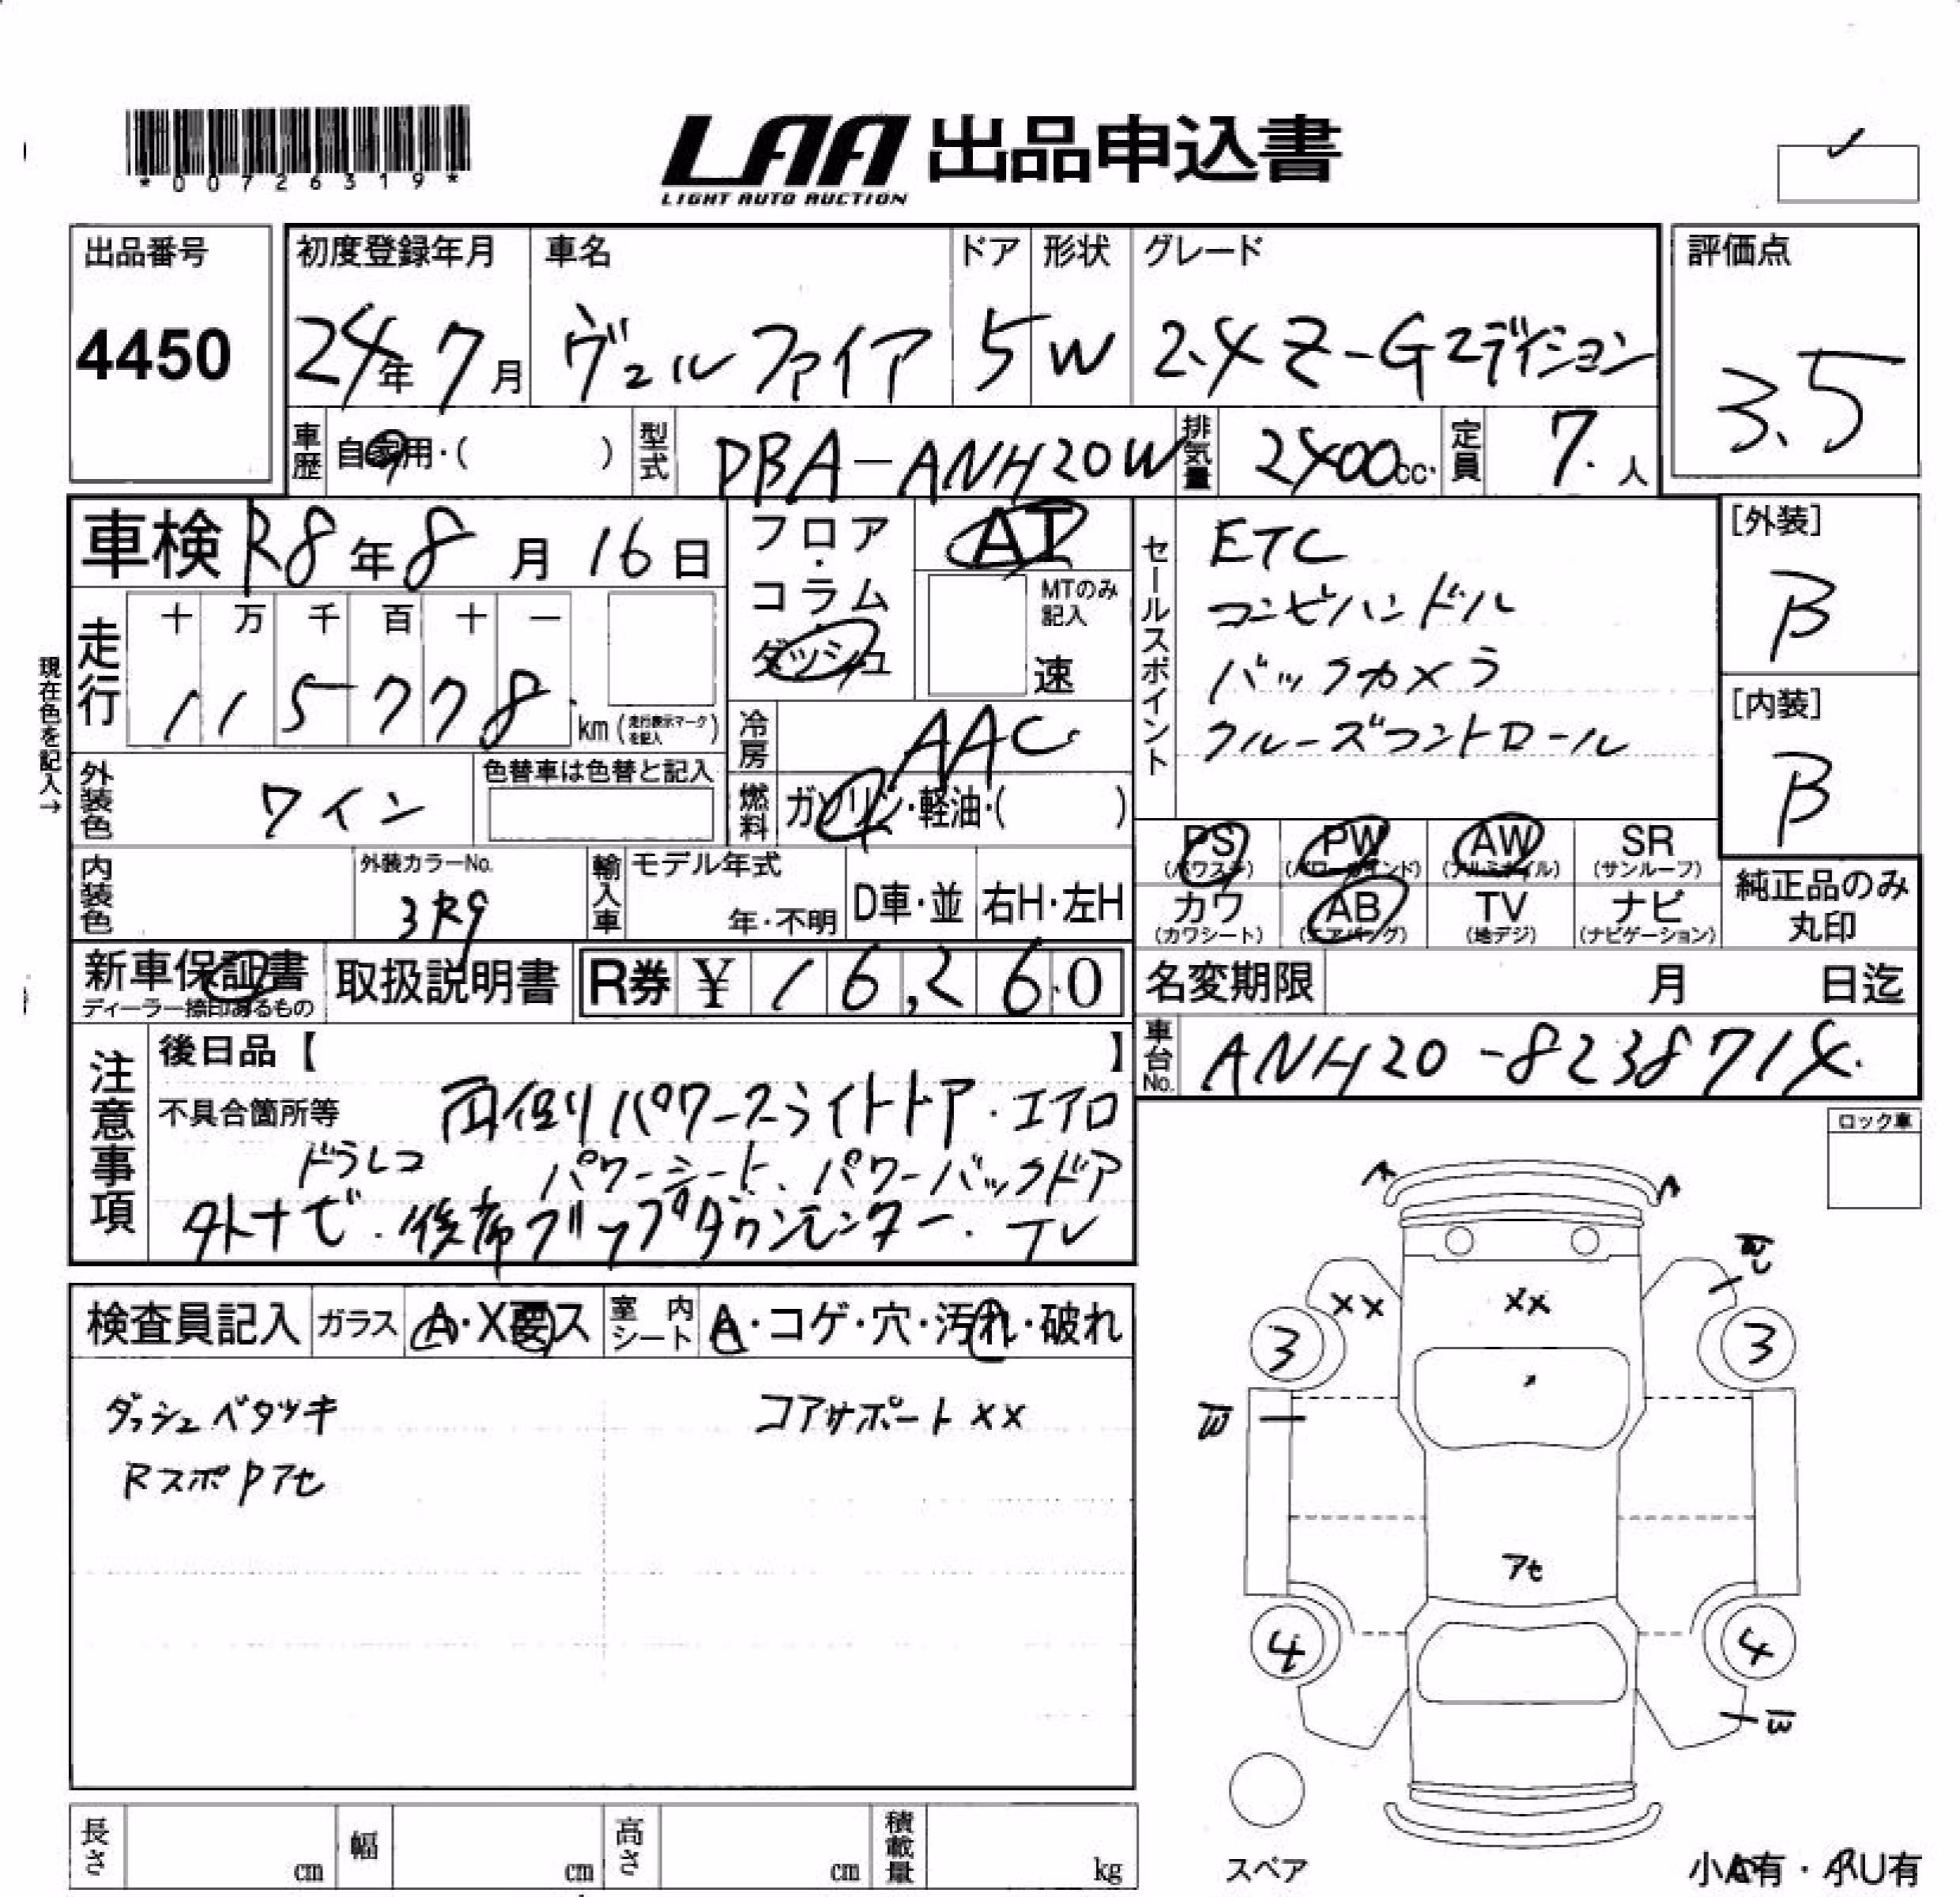 *00726319*
LAA 出品申込書
LIGHT AUTO AUCTION
出品番号
4450
初度登録年月
24年7月
車名
ヴェルファイア
ドア
5
形状
W
グレード
2.4 Z-Gエディション
評価点
3.5
車歴
自家用・( )
型式
DBA-ANH20W
排気量
2400cc
定員
7人
車検 R8年8月16日
フロア・コラム
ダッシュ
AT
MTのみ記入
速
セールスポイント
ETC
コンビハンドル
バックカメラ
クルーズコントロール
[外装]
B
[内装]
B
現在色を記入→
走行
十 万 千 百 十 一
1 1 5 7 7 8
km(走行表示マークを記入)
冷房
AAC
外装色
ワイン
色替車は色替と記入
燃料
ガソリン・軽油・( )
内装色
外装カラーNo.
3R9
輸入車
モデル年式
年・不明
D車・並
右H・左H
PS
(パワステ)
PW
(パワーウインド)
AW
(アルミホイル)
SR
(サンルーフ)
カワ
(カワシート)
AB
(エアバック)
TV
(地デジ)
ナビ
(ナビゲーション)
純正品のみ
丸印
新車保証書
ディーラー捺印あるもの
取扱説明書
R券 ¥ 16,260
名変期限 月 日迄
車台No.
ANH20-8238714
注意事項
後日品【 】
不具合箇所等
両側パワースライドドア・エアロ
ドラレコ パワーシート、パワーバックドア
外ナビ・後席フリップダウンモニター・TV
ロック車
検査員記入
ガラス
A・X要ス
室内シート
A・コゲ・穴・汚れ・破れ
ダッシュベタツキ
コアサポート××
Rスポイアセ
××
××
3
3
アセ
4
4
スペア
長さ cm
幅 cm
高さ cm
積載量 kg
小A有・ARU有